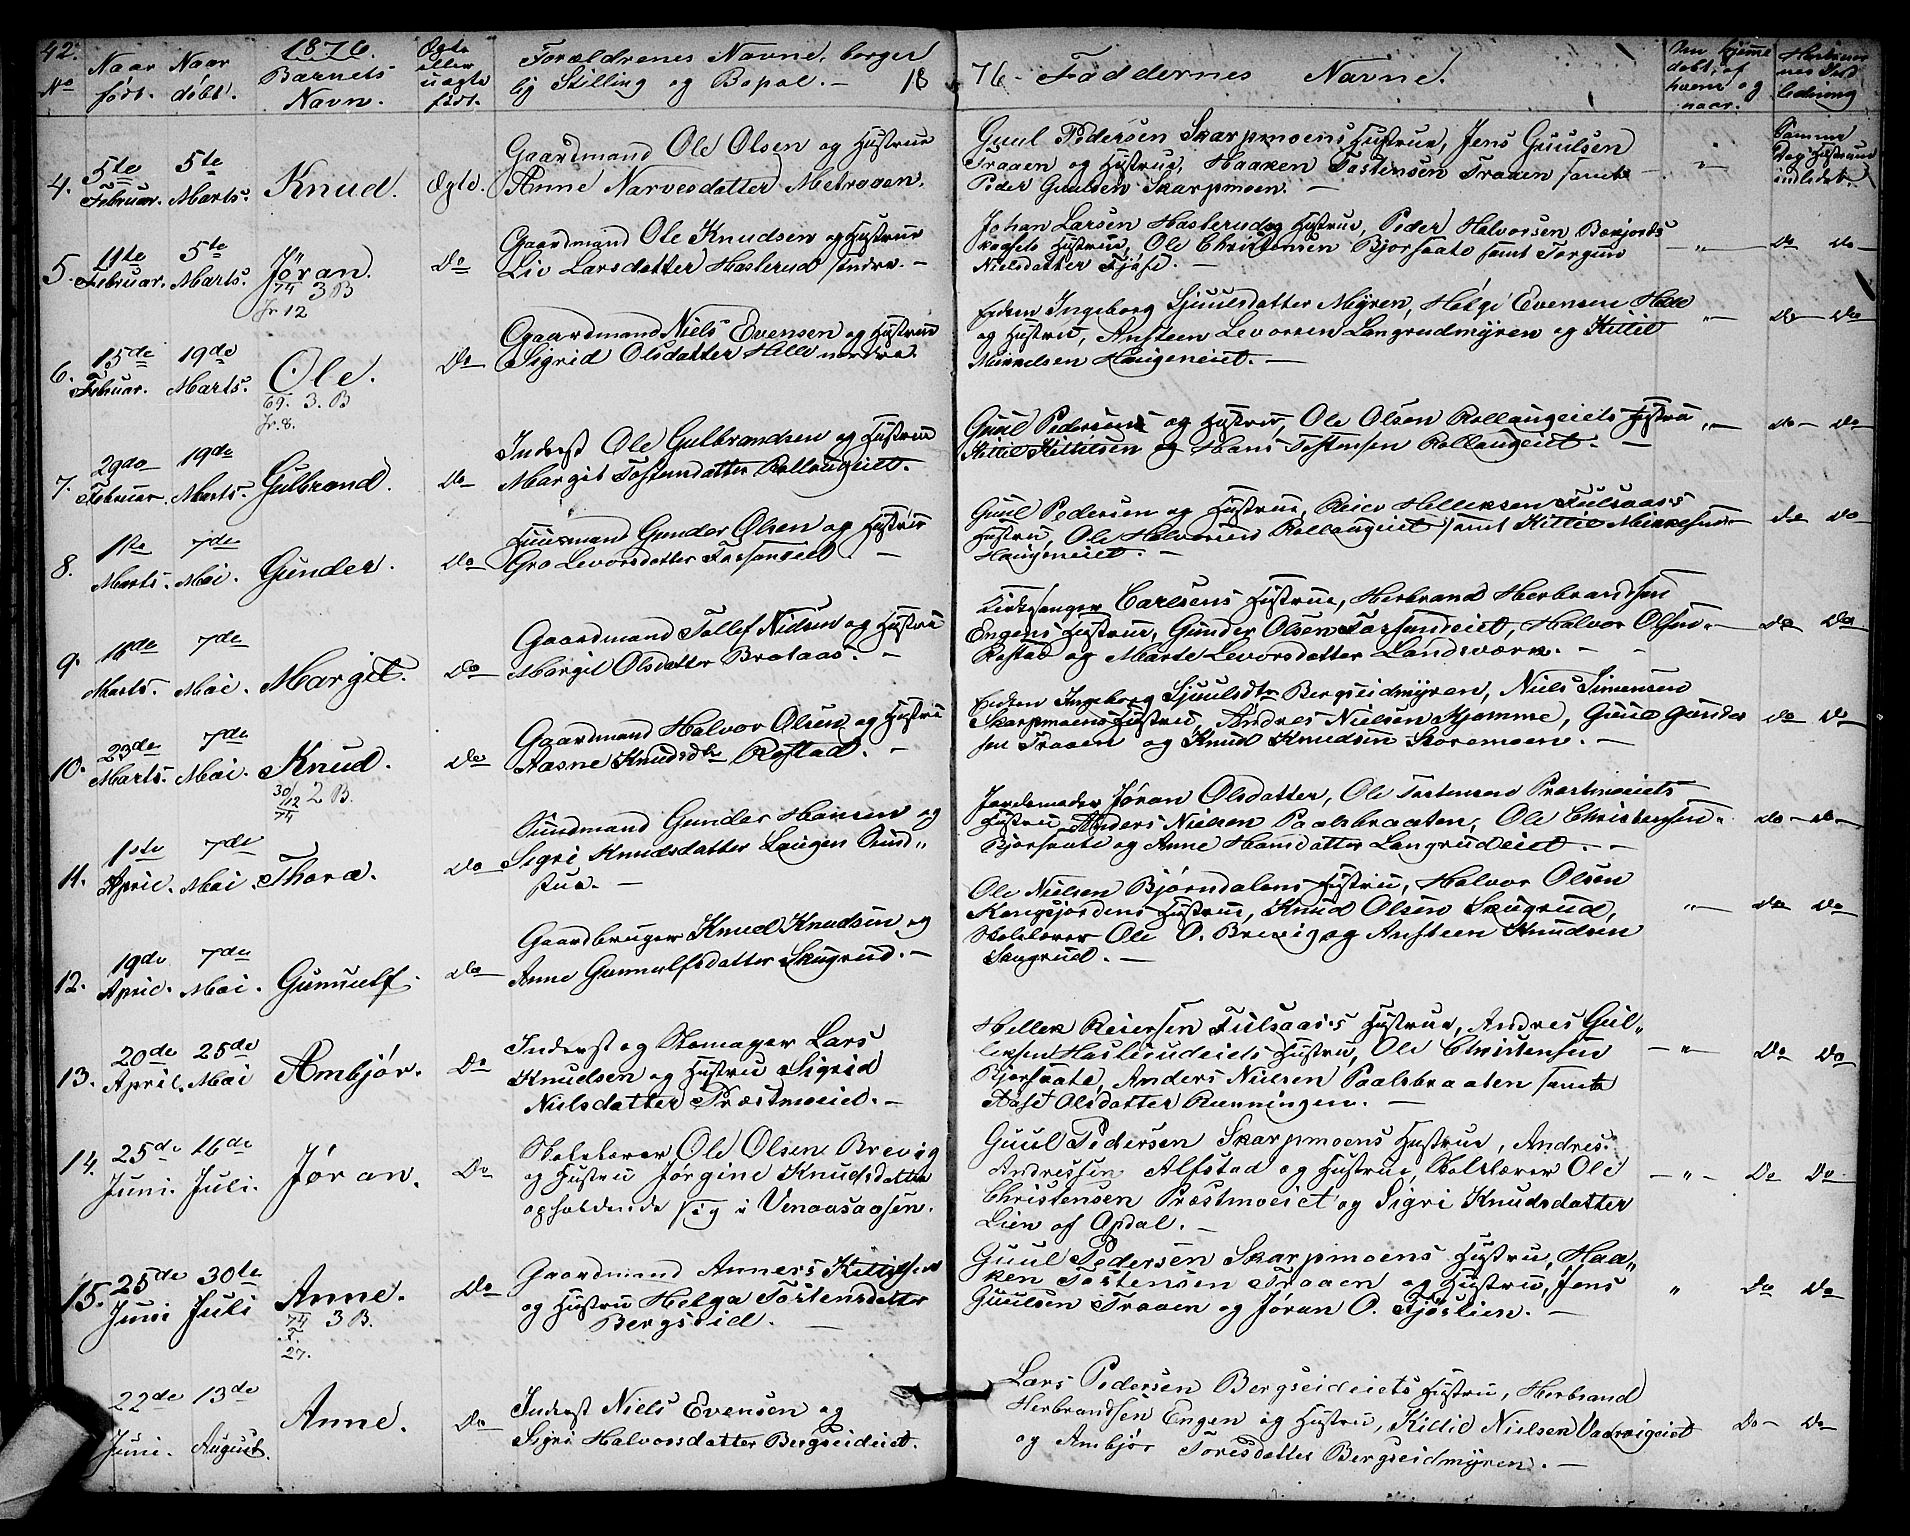 42.
No
Naar født.
Naar døbt.
1876.
Barnets Navn.
Ægte eller uægte født.
Forældrenes Navne, borger
lig Stilling og Bopæl. — 18
76 — Faddernes Navne.
Om hjemme
døbt, af
hvem og
naar.
4. 5te Februar. 5te Marts. Knud. Ægte.
Gaardmand Ole Olsen og Hustrue
Anne Narvesdatter Metraaen.
Guul Pedersen Skarpmoens Hustrue, Jens Guulsen
Traaen og Hustrue, Haaken Tostensen Traaen samt
Peder Guulsen Skarpmoen. —
Samme
Dag Hustruen
indledet.
5. 11te Februar. 5te Marts. Jøran. Do
74 3 B
Jr 12
Gaardmand Ole Knudsen og Hustrue
Liv Larsdatter Haslerud søndre. —
Johan Larsen Haslerud og Hustrue, Peder Halvorsen
Hustrue, Ole Christensen Bjørsaate samt Torgun
Nielsdatter Fjøse. —
Do Do
6. 15de Februar. 19de Marts. Ole. Do
69. 3. B
Jr. 8.
Gaardmand Niels Evensen og Hustrue
Sigrid Olsdatter Helle nordre.
Enken Ingeborg Sjuulsdatter Myren, Helge Evensen Helle
og Hustru, Ansteen Levorsen Langrudmyren og Kittil
Mikkelsen Haugeneiet. —
Do Do
7. 29de Februar. 19de Marts. Gulbrand. Do
Inderst Ole Gulbrandsen og Hustrue
Margit Tostensdatter Rollaugeiet.
Guul Pedersen og Hustrue, Ole Olsen Rollaugeiets Hustru
Kittil Kittilsen og Hans Tostensen Rollaugeiet. —
Do Do
8. 1ste Marts. 7de Mai. Gunder. Do
Huusmand Gunder Olsen og Hustrue
Gro Levorsdatter
Guul Pedersen og Hustrue, Reier Helleksen Fulsaas's
Hustru, Ole Halvorsen Rollaugeiet samt Kittil Mikkelsen
Haugeneiet. —
Do Do
9. 18de Marts. 7de Mai. Margit. Do
Gaardmand Tollef Nielsen og Hustru
Margit Olsdatter Brataas. —
Kirkesanger Carlsens Hustrue, Herbrand Herbrandsen
Engens Hustrue, Gunder Olsen Halvor Olsen
Rostad og Marte Levorsdatter Landsværk. —
Do Do
10. 23de Marts. 7de Mai. Knud. Do
30/12 2 B.
74
Gaardmand Halvor Olsen og Hustru
Aasne Knudsdtr Rostad. —
Enken Ingeborg Sjuulsdtr Bergseidmyren, Niels Simensen
Skarpmoens Hustru, Andres Nielsen Kjomme, Guul Gunder
sen Traaen og Knud Knudsen Storemoen. —
Do Do
11. 1ste April. 7de Mai. Thora. Do
Sundmand Gunder Hansen og
Sigri Knudsdatter Laugen Sund„
stua. —
Jordemoder Jøran Olsdatter, Ole Tostensen Præstmoeiets
Hustru, Anders Nielsen Paalsbraaten, Ole Christensen
Bjørsaate og Anne Hansdatter Langrudeiet. —
Do — Do —
12. 19de April. 7de Mai. Gunnulf. Do
Gaardbruger Knud Knudsen og
Anne Gunnulfsdatter Skugrud. —
Ole Nielsen Bjørndalens Hustru, Halvor Olsen
Kongsjordens Hustrue, Knud Olsen Skugrud,
Skolelærer Ole O. Brevig og Ansteen Knudsen
Skugrud. —
Do Do
13. 20de April. 25de Mai. Ambjør. Do
Inderst og Skomager Lars
Knudsen og Hustru Sigrid
Nielsdatter Præstmoeiet. —
Hellek Reiersen Fulsaas's Hustrue, Andres Gul„
leksen Haslerudeiets Hustru, Ole Christensen
Bjørsaate, Anders Nielsen Paalsbraaten samt
Aase Olsdatter Runningen. —
Do Do
14. 25de Juni. 16de Juli. Jøran. Do
Skolelærer Ole Olsen Brevig
og Hustru Jørgine Knudsdatter
opholdende sig i Venaasaasen.
Guul Pedersen Skarpmoens Hustrue, Andres
Andressen Alfstad og Hustrue, Skolelærer Ole
Christensen Præstmoeiet og Sigri Knudsdatter
Lien af Opdal. —
Do Do
15. 25de Juni 30te Juli Anne. Do
74 3 B.
F.
27.
Gaardmand Anners Kittilsen
og Hustru Helga Tostensdatter
Bergseid. —
Guul Pedersen Skarpmoens Hustru, Haa„
ken Tostensen Traaen og Hustru, Jens
Guulsen Traaen og Jøran O. Fjøslien. —
Do Do
22de Juni. 13de August. Anne. Do
Inderst Niels Evensen og
Sigri Halvorsdatter Bergseideiet.
Lars Pedersen Bergseideiets Hustru, Herbrand
Herbrandsen Engen og Hustru, Kittil Nielsen
og Ambjør Toresdatter Bergseidmyren. —
Do — Do